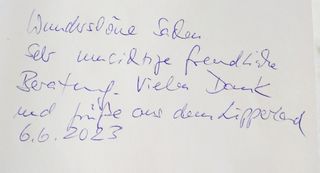 Wunderschöne Sachen
Sehr umsichtige freundliche
Beratung. Vielen Dank
und Grüße aus dem Lipperland
6.6.2023